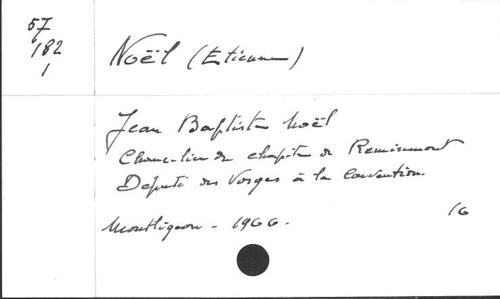 57
182
1
Noël (Etienne)
Jean Baptiste Noël
Chancelier du chapitre de Remiremont
Député des Vosges à la Convention.
Montligeon - 1966.
16